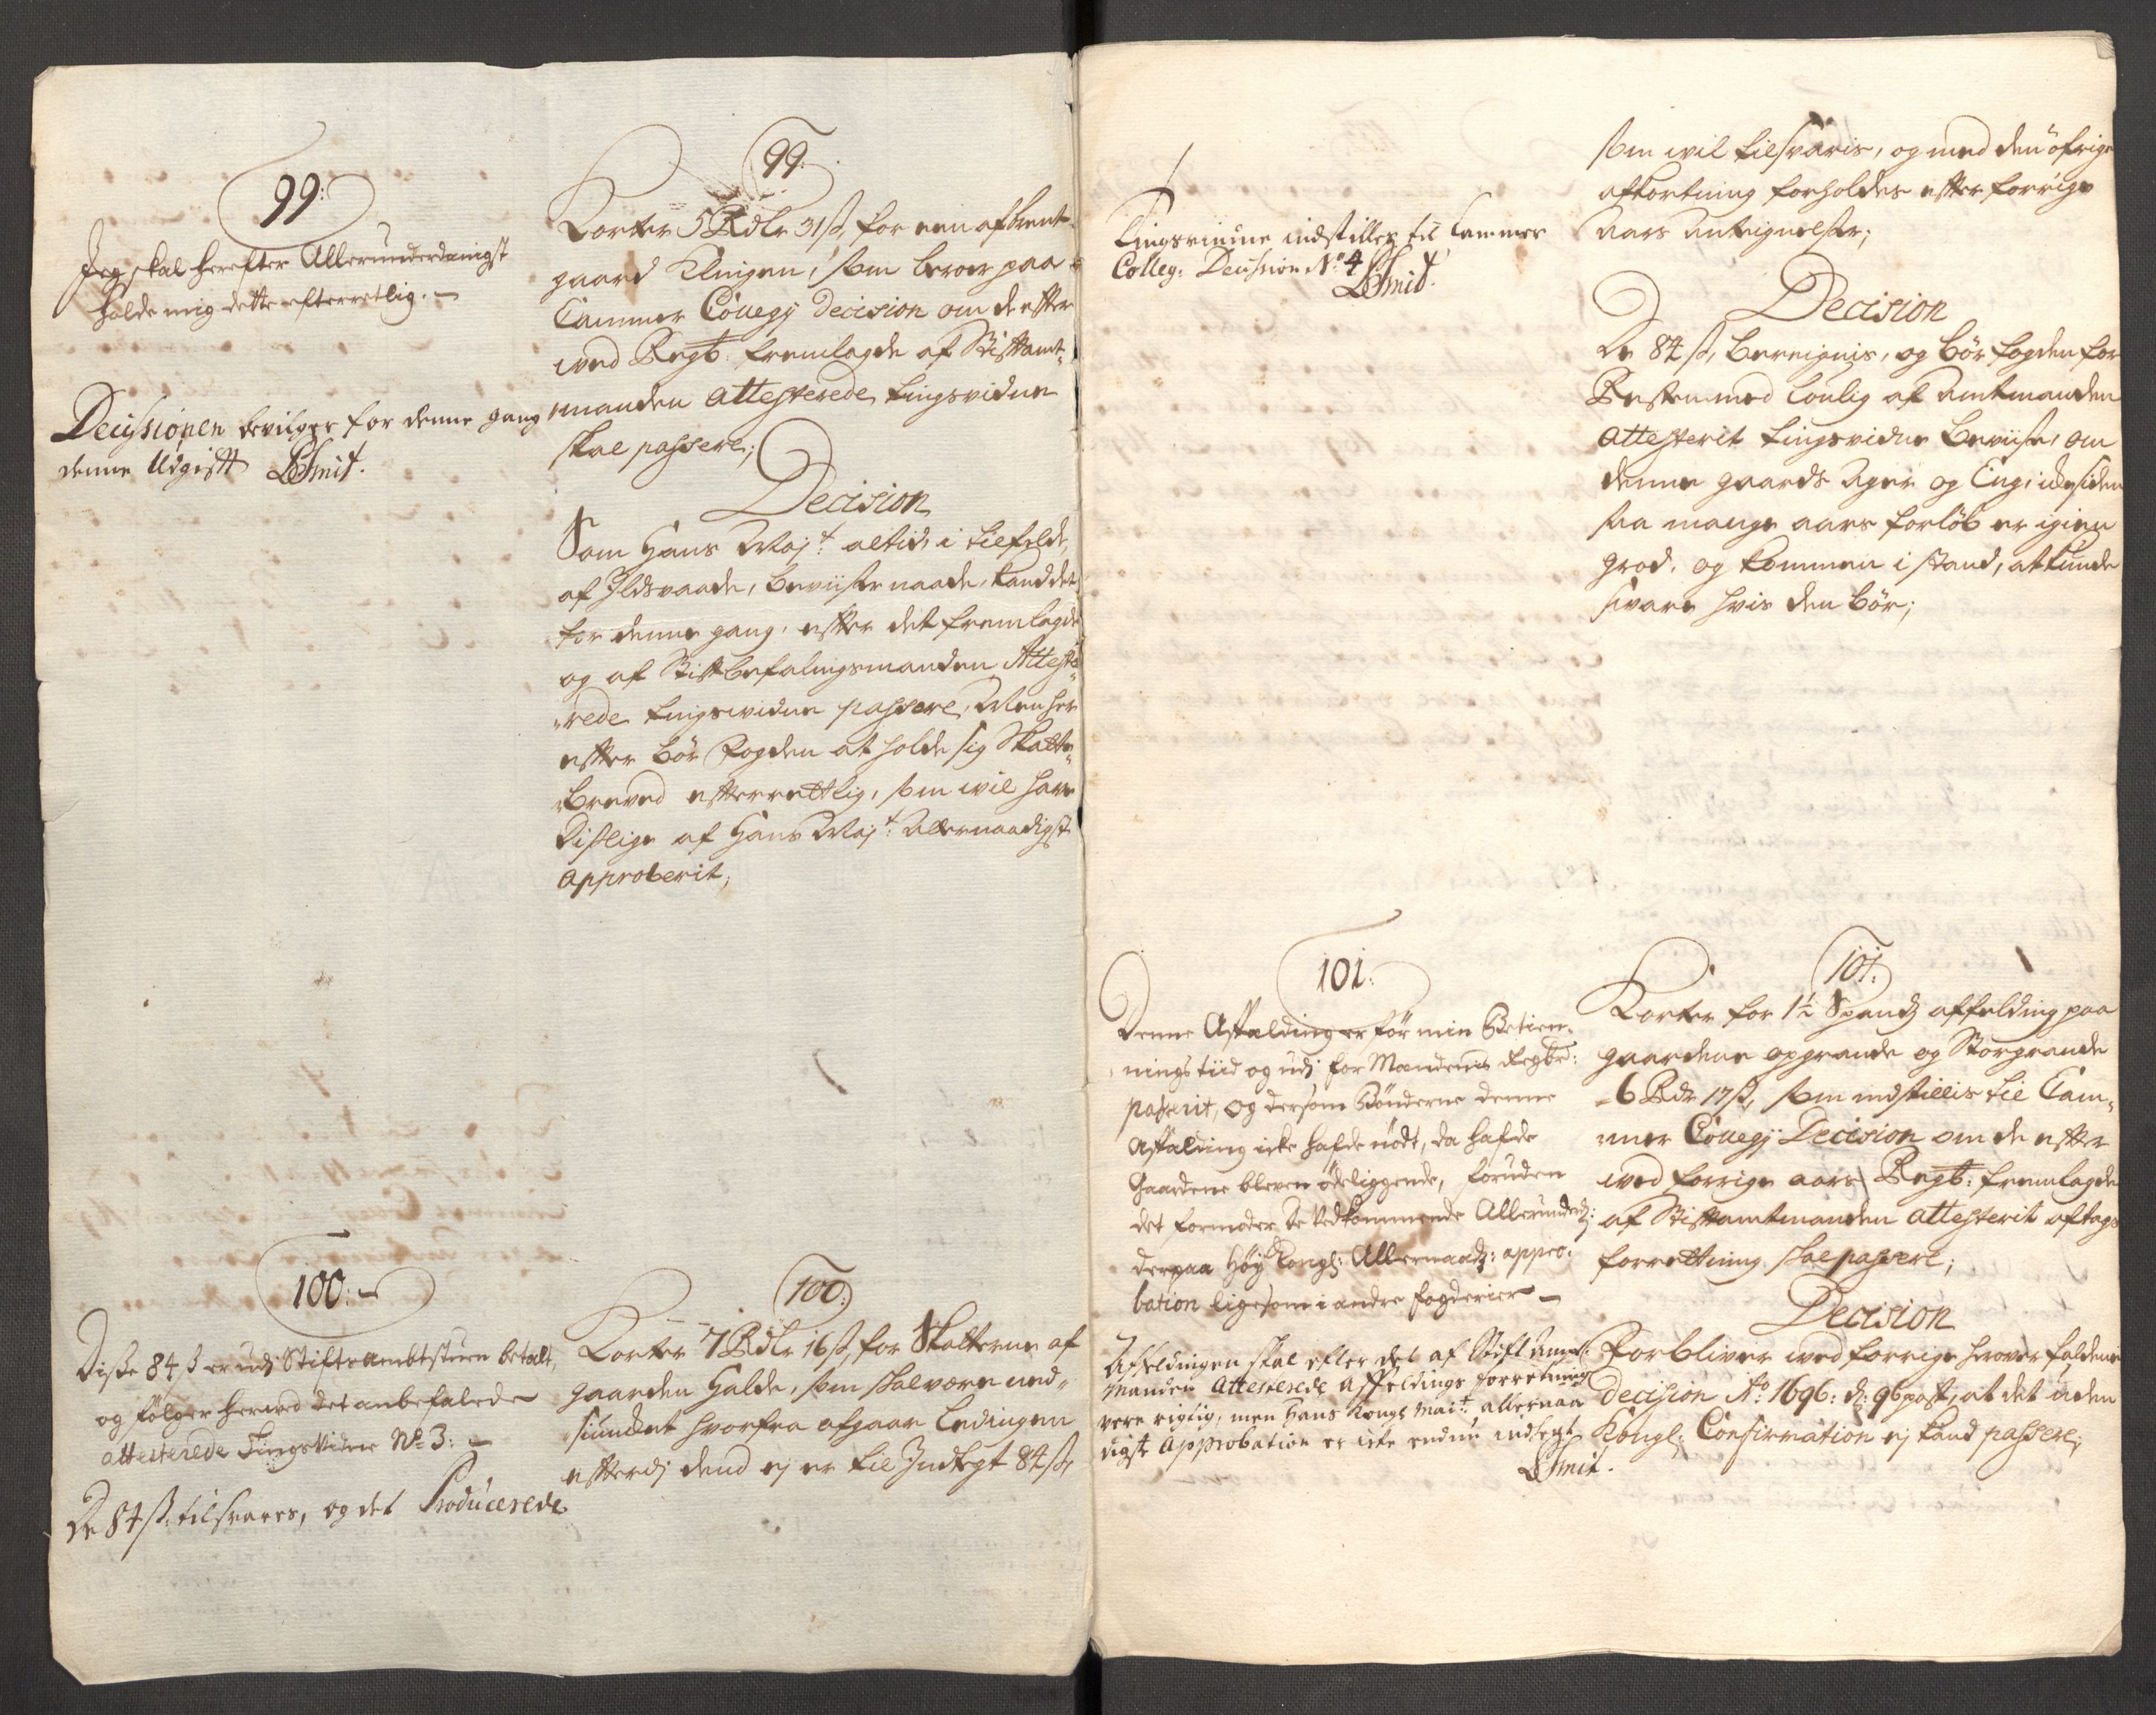 99:
Jeg skal herefter Allerunderdanigst
holde mig dette efterretlig. —
Decissionen beviliger for denne gang
denne Udgifft LSmit.
100: —
Disse 84 s er udj Stiftsambtstuen betalt,
og følger hermed det anbefalede
attesterede Tingsvidne No 3: —
De 84 ß tilsvares, og det Producerede
99.
Korter 5 Rdlr 31 ß, for een afbrent
gaard Klingen, som beroer paa
Cammer Collegij Decision om de efter
wed Regt: fremlagde af Stiftamt-
manden attesterede tingsvidne
skal passere;
Decision
Som Hans Maj:t altid, i tilfelde
af Ildsvaade, beviiser naade, kand det
for denne gang, efter det fremlagde
og af Stiftbefalingsmanden Atteste-
rede tingsvidne passere, Men her
efter bør Fogden at holde sig Skatte-
Breved efterrettlig, som wil have
Disslige af Hans Maj:t Allernaadigst
approberit;
100.
Korter 7 Rdlr 16 ß, for Skatterne af
gaarden Halde, som skal være ned-
siuncket hvorfra afgaar Ledingen
efterdj dend ej er til Indtegt 84 ß,
Tingsvinne indstilles til Cammer
Colleg: Decission No 4
LSmit.
101:
Denne Affælding er før min Betien-
ningstiid og udj for Mandenis Regbr:
passerit, og dersom Bønderne denne
Affælding icke hafde nødt, da hafde
Gaardene bleven ødeliggende, foruden
det formoder De Vedkommende Allerund:
derpaa Høy Kongl: Allernaad: appro-
bation ligesom i andre fogderier —
Affeldingen skal efter det af Stift Ampt-
Manden Attesterede Affeldings forretning
vere rigtig, men Hans Kongl Mai:t allernaa
digst Approbation er icke endnu indlegt
LSmit.
som wil tilsvaris, og med den øfrige
afkortning forholdes efter forrige
Aars Antegnelser;
Decision
De 84 ß, bereignis, og bør fogden for
Resten med lovlig af Amtmanden
attesterit tingsvidne beviise, om
denne gaards Ager og Eng, icke siden
saa mange aars forløb er igien
groed, og kommen i stand, at kunde
svare hvis den bør;
101.
Korter for 1½ Spand affelding paa
gaardene opgrande og Storgrande
6 Rdr 17 ß, som indstillis til Cam-
mer Collegij Decision om de efter
wed forrige aars Regt: fremlagde
af Stiftamtmanden attesterit aftags
forrettning skal passere;
Decision
Forbliver wed forrige herover faldene
decision Ao 1696: d: 96 post, at det uden
Kongl: Confirmation ej kand passere;